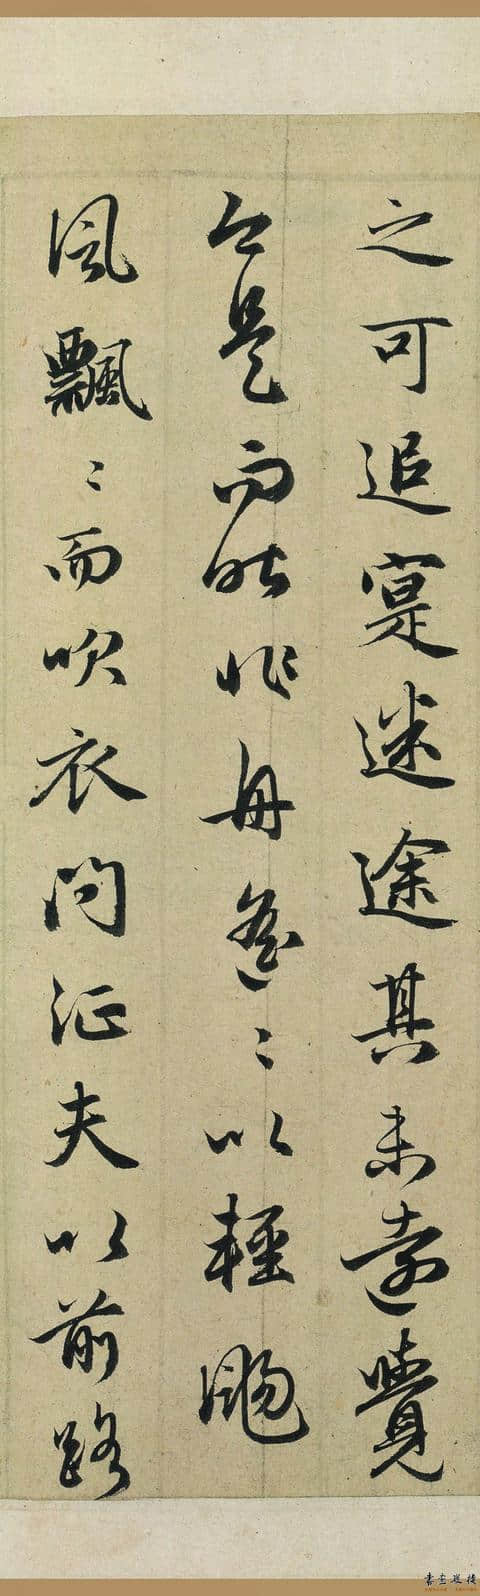 之可追寔迷途其未遠覺
今是而昨非舟遙〻以輕颺
風飄〻而吹衣問征夫以前路